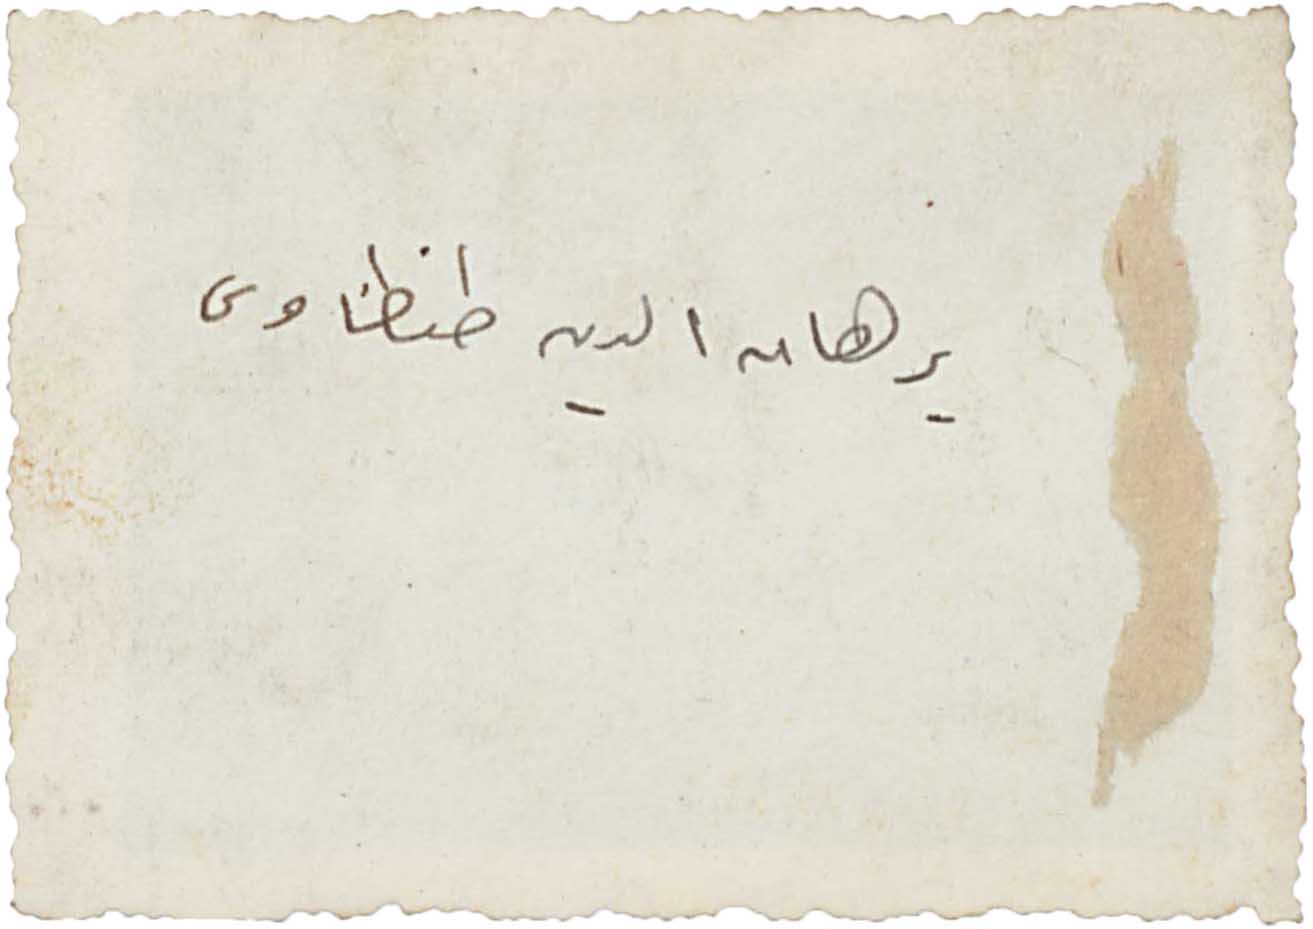 برهان الدين طنطاوى